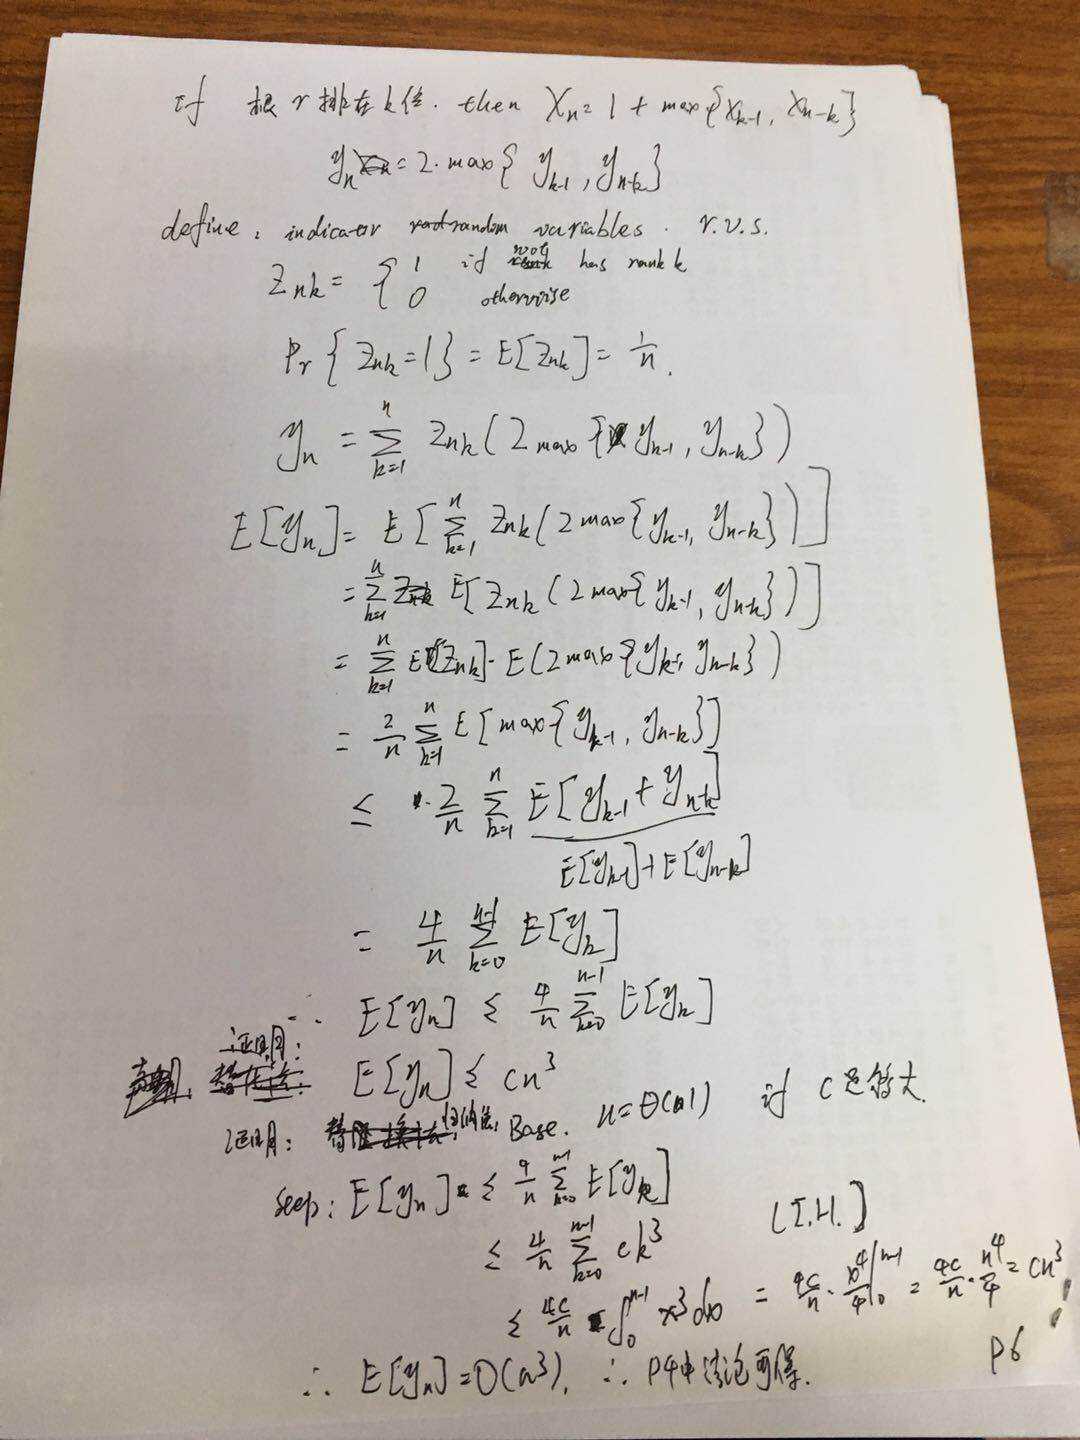 if 根r排在k位. then Xn = 1 + max{Xk-1, Xn-k}
yn = 2·max{yk-1, yn-k}
define: indicator random variables. r.v.s.
Znk = { 1 if root has rank k
0 otherwise
Pr{Znk=1} = E[Znk] = 1/n.
yn = Σ_{k=1}^{n} Znk(2max{yk-1, yn-k})
E[yn] = E[Σ_{k=1}^{n} Znk(2max{yk-1, yn-k})]
= Σ_{k=1}^{n} E[Znk(2max{yk-1, yn-k})]
= Σ_{k=1}^{n} E[Znk]·E(2max{yk-1, yn-k})
= 2/n Σ_{k=1}^{n} E[max{yk-1, yn-k}]
≤ 2/n Σ_{k=1}^{n} E[yk-1 + yn-k]
E[yk-1]+E[yn-k]
= 4/n Σ_{k=0}^{n-1} E[yk]
∴ E[yn] ≤ 4/n Σ_{k=0}^{n-1} E[yk]
证明: E[yn] ≤ cn³
证明: 归纳法, Base. n=Θ(1) if c足够大.
seep: E[yn] ≤ 4/n Σ_{k=0}^{n-1} E[yk]
≤ 4/n Σ_{k=0}^{n-1} ck³ [I.H.]
≤ 4c/n ∫_0^{n-1} x³dx = 4c/n · x⁴/4 |_0^{n-1} = 4c/n · n⁴/4 = cn³
∴ E[yn]=O(n³), ∴ P4中结论可得.
P6